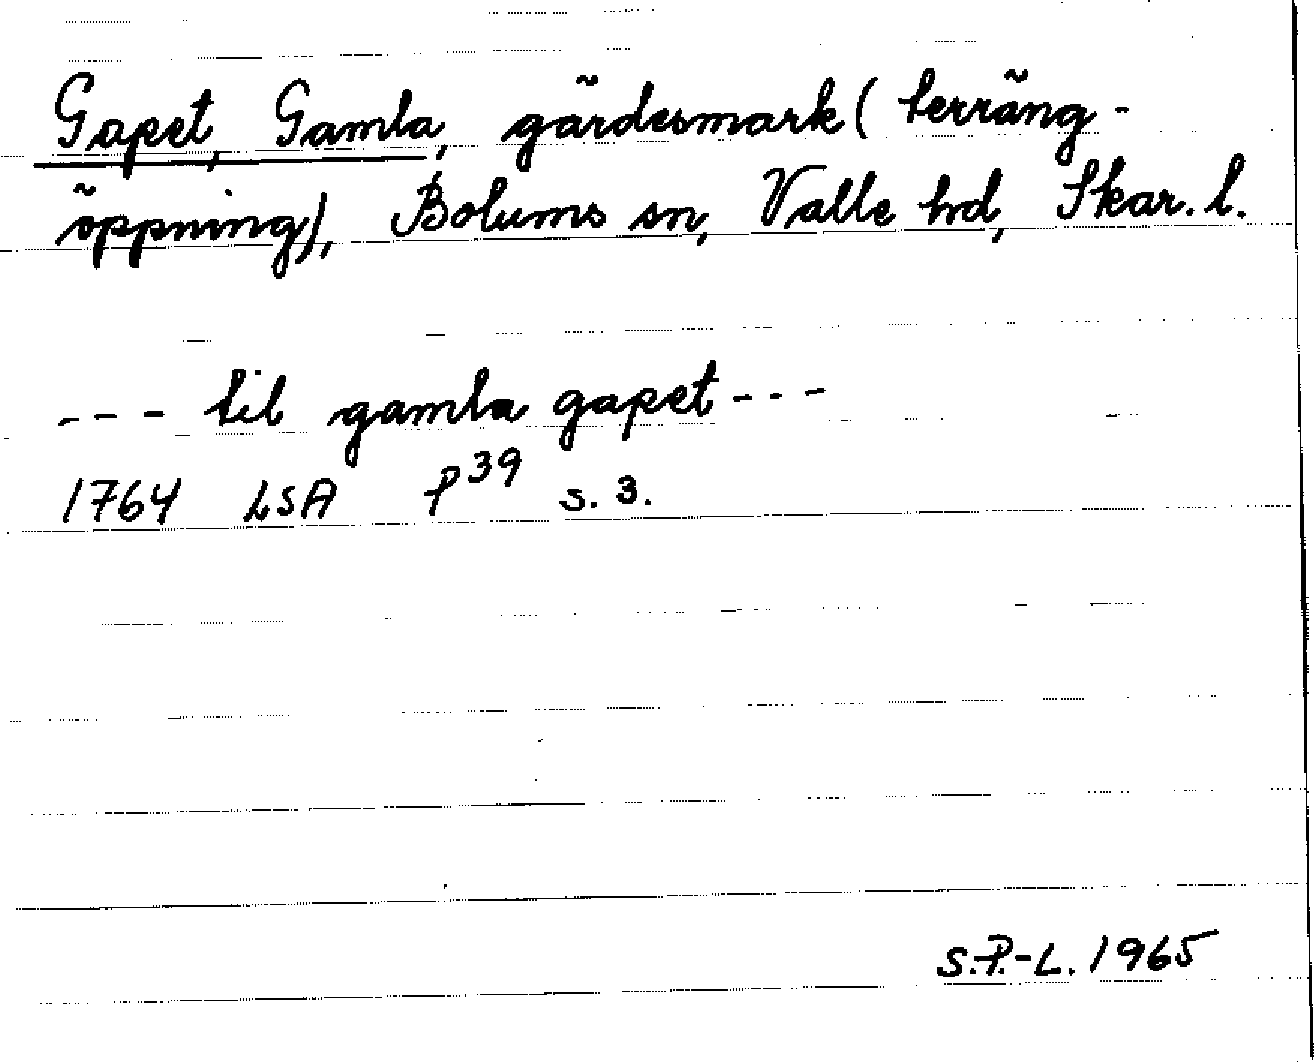 Gapet, Gamla, gärdesmark (terräng-
öppning), Bolums sn, Valle hd, Skar. l.
--- til gamla gapet ---
1764 LSA P39 s. 3.
S.P.-L. 1965